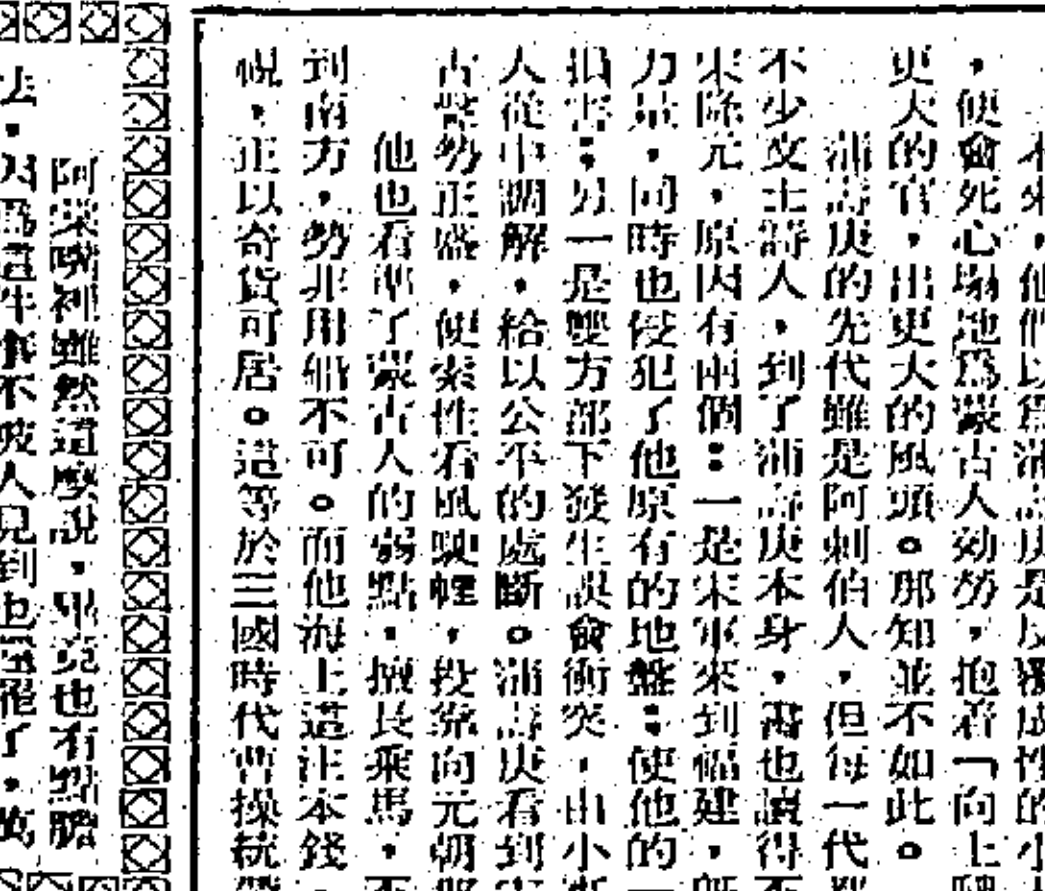 本來，他們以為蒲壽庚是反覆成性的小
，便會死心塌地爲蒙古人効勞，抱着「向上
更大的官，出更大的風頭。那知並不如此。
蒲壽庚的先代雖是阿剌伯人，但每一代
不少文士詩人，到了蒲壽庚本身，書也讀得不
宋除元，原因有兩個：一是宋軍來到福建，
力量，同時也侵犯了他原有的地盤；使他的一
損害；另一是雙方部下發生誤會衝突，由小
人從中調解，給以公平的處斷。蒲壽庚看到
古聲勢正盛，便索性看風駛𢃇，投靠向元朝那
他也看準了蒙古人的弱點，擅長乘馬，不
到南方，勢非用船不可。而他海上這注本錢，
視，正以奇貨可居。這等於三國時代曹操統帶
阿榮嘴裡雖然這麼說，畢竟也有點膽
去，因爲這件事不被人見到也還罷了，萬